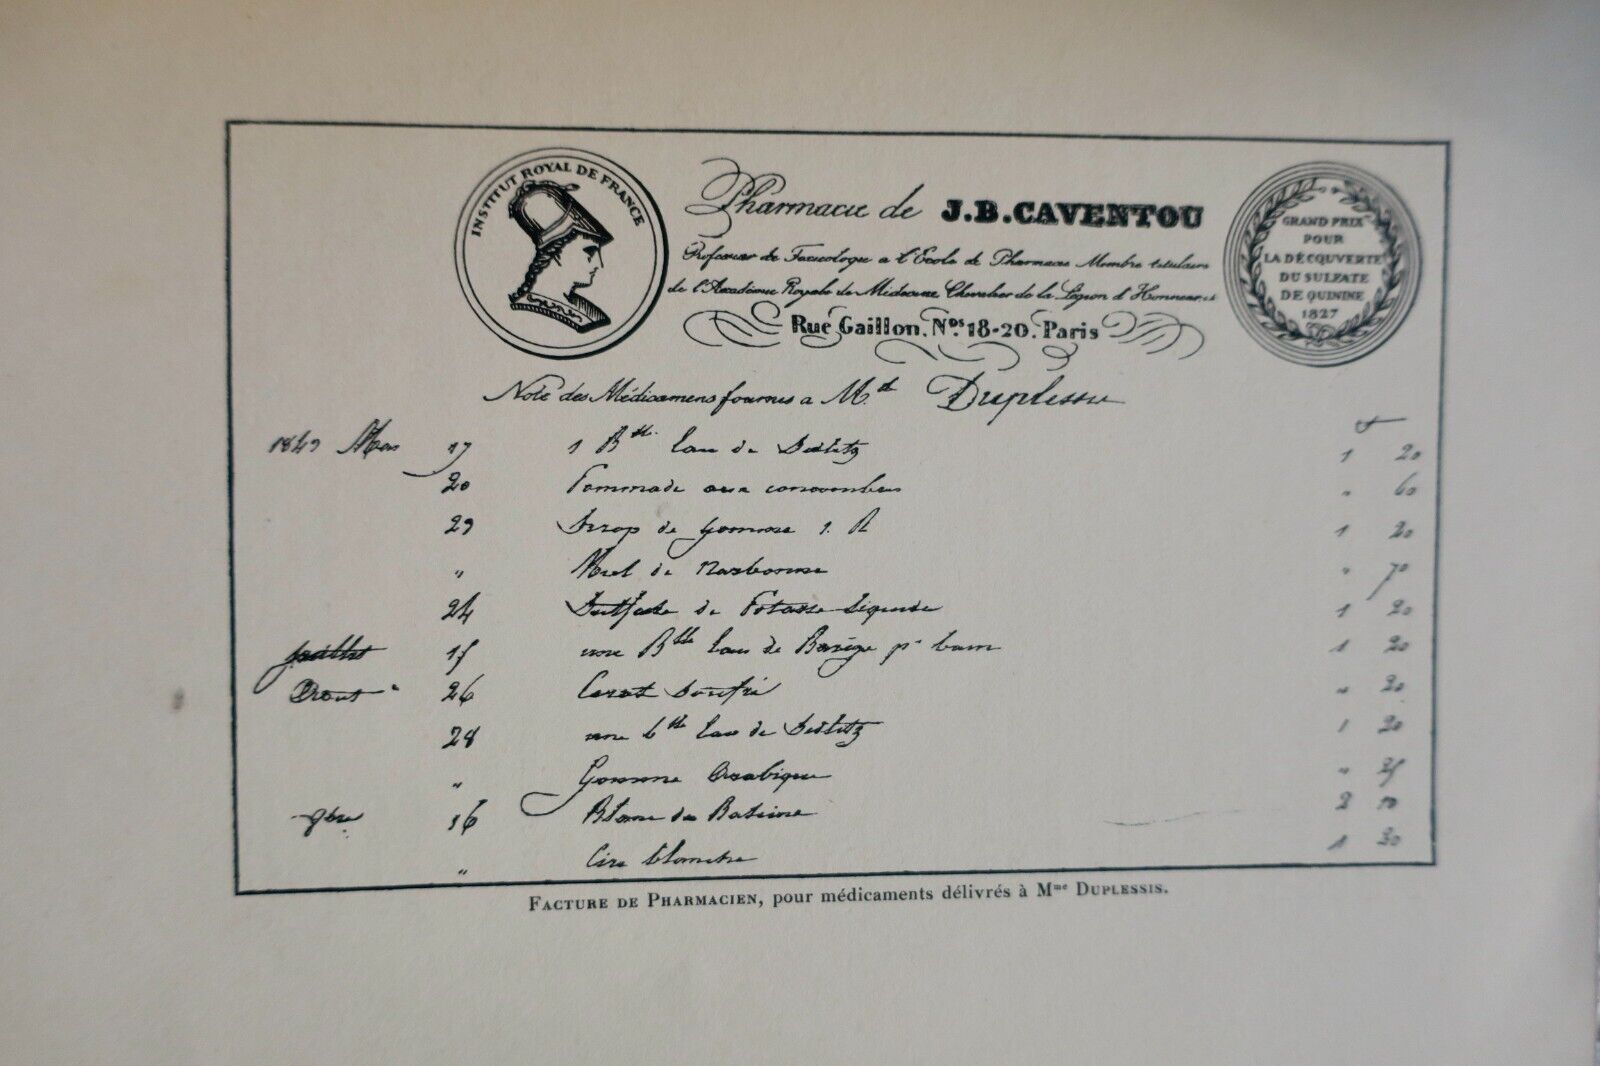 INSTITUT ROYAL DE FRANCE
Pharmacie de J.B. CAVENTOU
Professeur de Toxicologie a l'Ecole de Pharmacie Membre titulaire
de l'Académie Royale de Médecine Chevalier de la Légion d'Honneur
Rue Gaillon. Nos. 18-20. Paris
GRAND PRIX
POUR
LA DÉCOUVERTE
DU SULFATE
DE QUININE
1827
Note des Médicamens fournis a Md Duplessis
f
Mars 17 1 Blle Eau de Sedlitz 1 20
20 Pommade aux concombres " 60
Sirop de gomme 1 20
" Miel de Narbonne " 70
24 Sulfate de Potasse liquide 1 20
juillet 15 une Blle Eau de Barège pr bain 1 20
26 Cerat Soufré "
28 une blle Eau de Sedlitz 1 20
" Gomme Arabique "
9bre 16 Blanc de Baleine 2
" Cire blanche 1
FACTURE DE PHARMACIEN, pour médicaments délivrés à Mme DUPLESSIS.